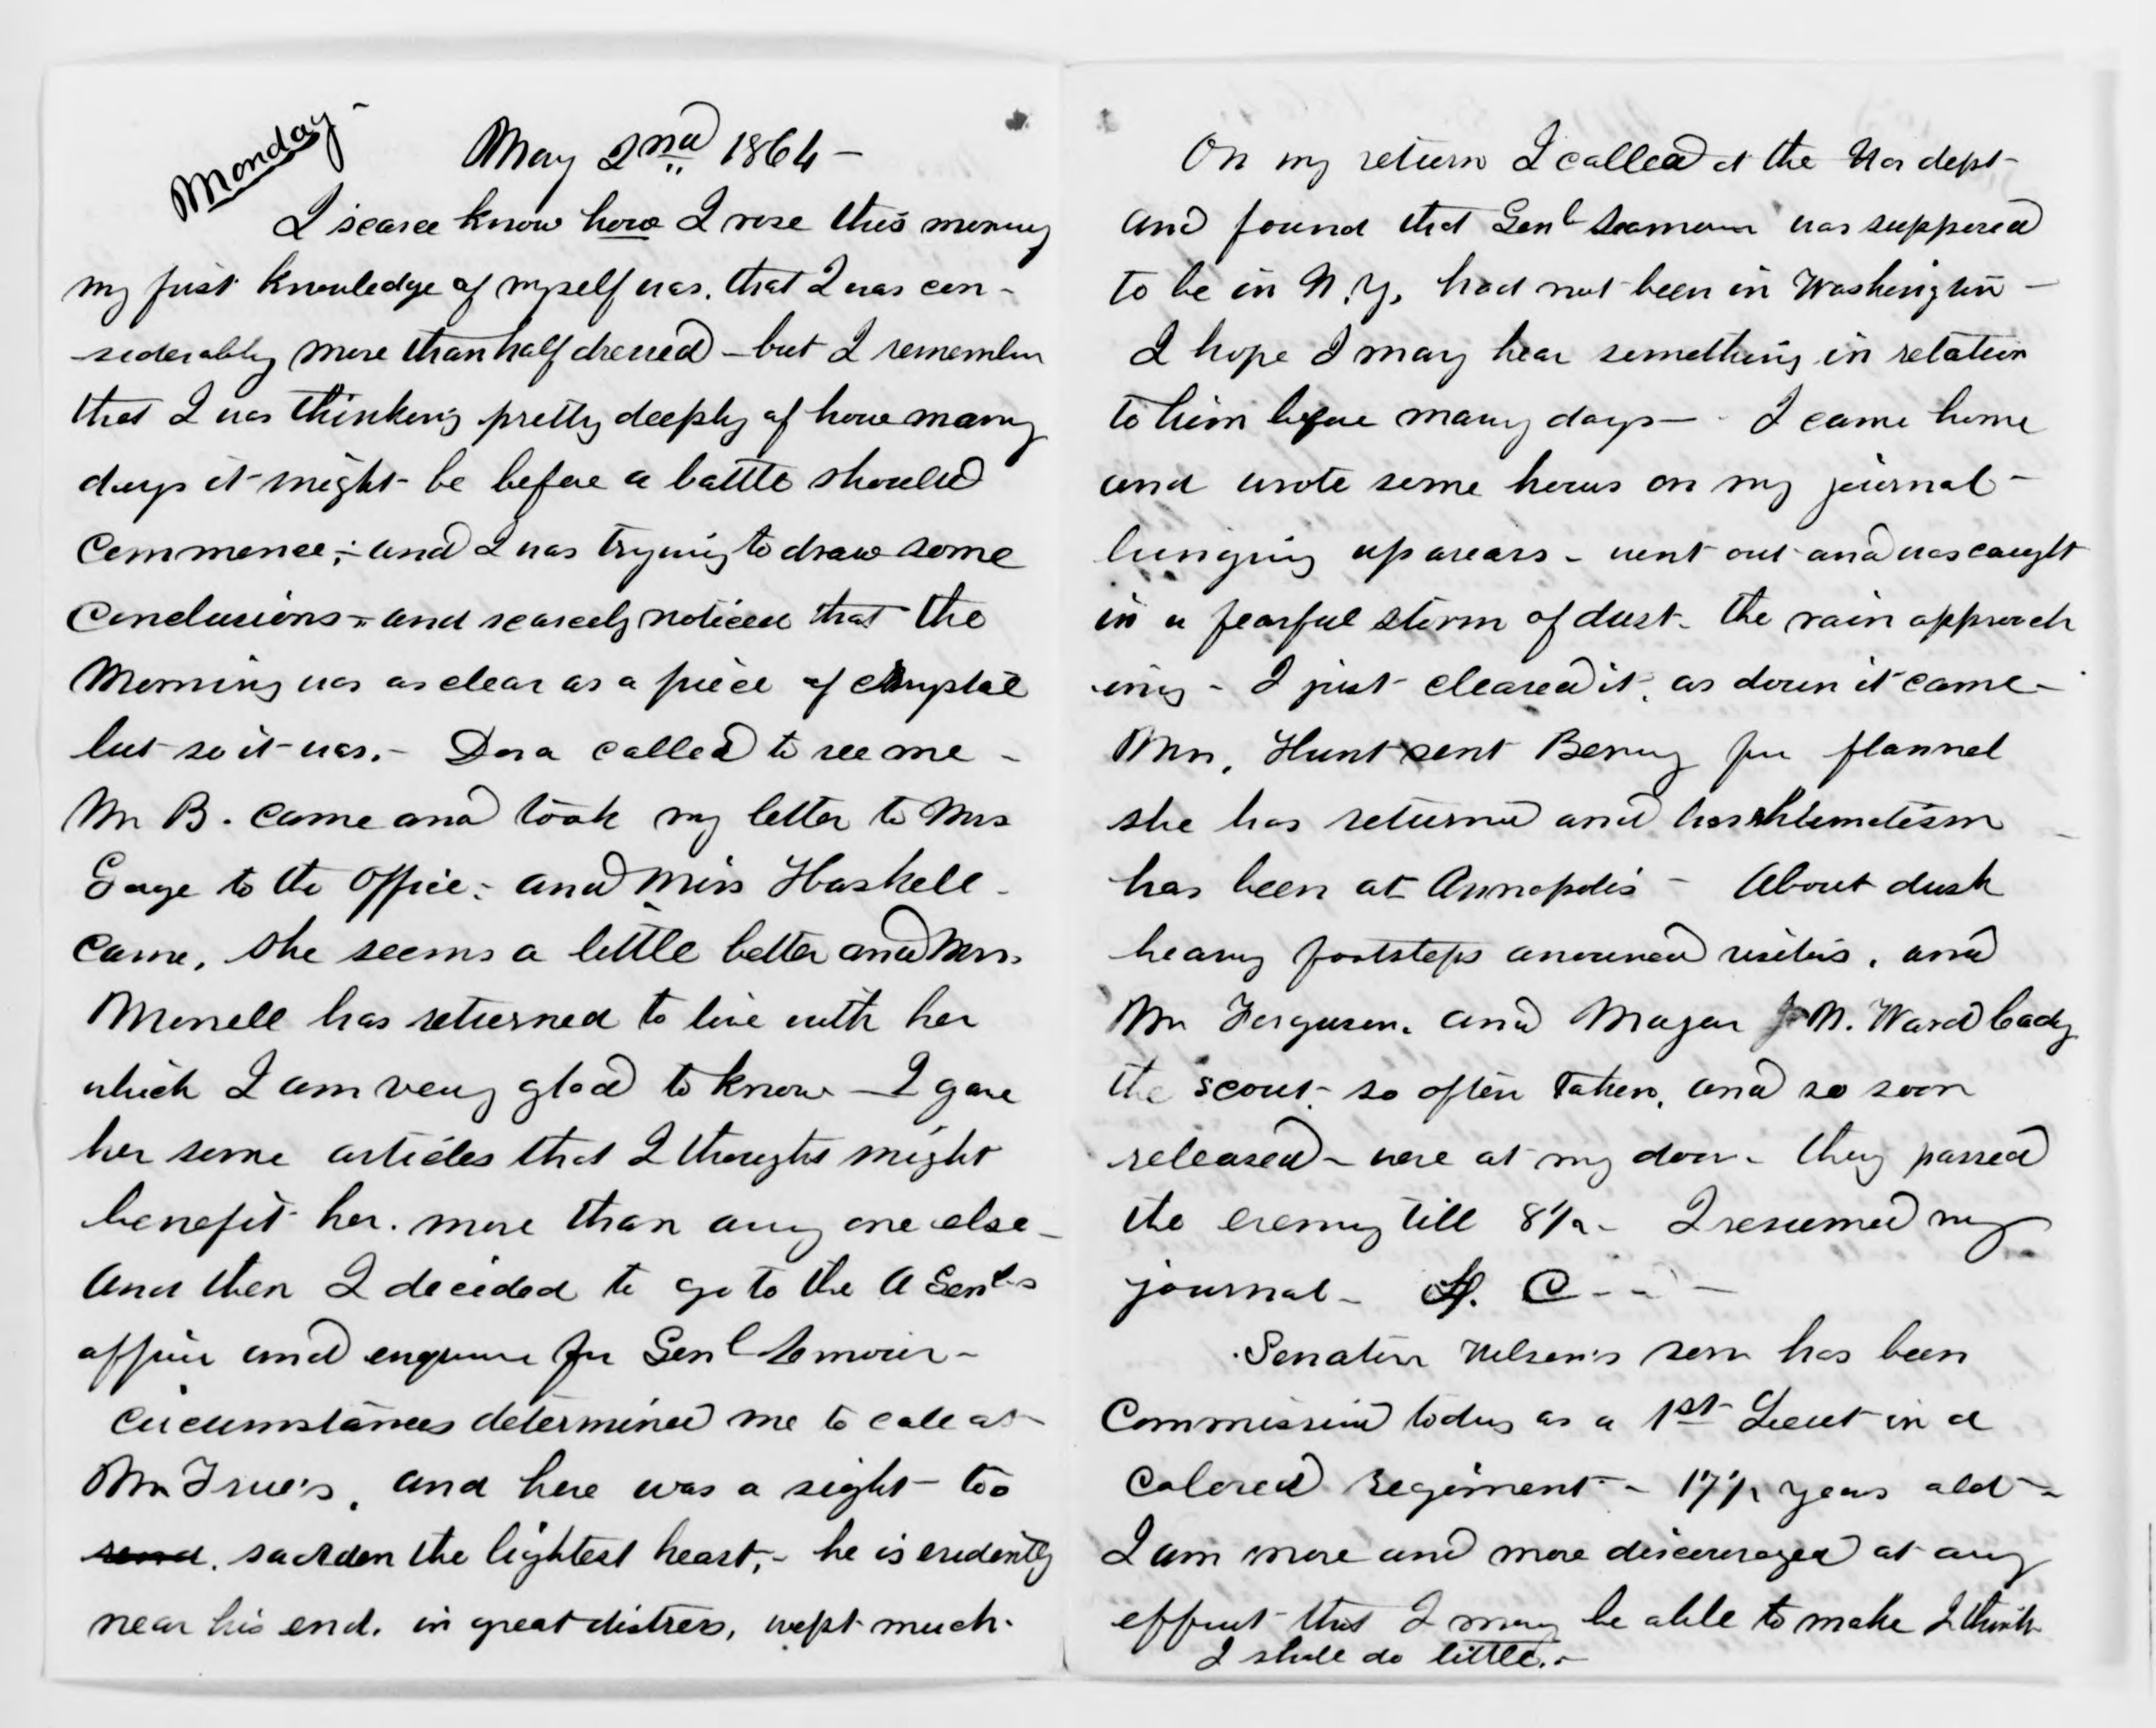 Monday -
May 2nd 1864 -
I scarce know how I rose this morning
my first knowledge of myself was, that I was con-
-siderably more than half dressed - but I remember
that I was thinking pretty deeply of how many
days it might be before a battle should
commence; - and I was trying to draw some
conclusions - and scarcely noticed that the
morning was as clear as a piece of chrystal
but so it was. - Dora called to see me -
Mr B. came and took my letter to Mrs
Gage to the Office; and Miss Haskell -
came, she seems a little better and Mrs.
Morrell has returned to live with her
which I am very glad to know - I gave
her some articles that I thought might
benefit her. more than any one else -
And then I decided to go to the A Genls
office and enquire for Genl
circumstances determined me to call at
Mr True's, and here was a sight too
send. sadden the lightest heart, - he is evidently
near his end. in great distress, wept much.
On my return I called at the War dept -
and found that Genl Seamour was supposed
to be in N.Y. had not been in Washington -
I hope I may hear something in relation
to him before many days - I came home
and wrote some hours on my journal -
bringing up arears - went out and was caught
in a fearful storm of dust - the rain approach
-ing - I just cleared it, as down it came -
Mrs. Hunt sent Benny for flannel
she has returned and has rhumetism
has been at Annapolis - About dusk
heavy footsteps anounced visitors. and
Mr Ferguson. and Magor J N. Ward Cady
the scout - so often taken, and so soon
released - were at my door - they passed
the evening till 8 1/2 - I resumed my
journal - C - - -
Senator Nelson's son has been
Commissioned today as a 1st Lieut in a
Colored regiment - 17 1/2 years old -
I am more and more discouraged at any
effort that I may be able to make I think
I shall do little. -